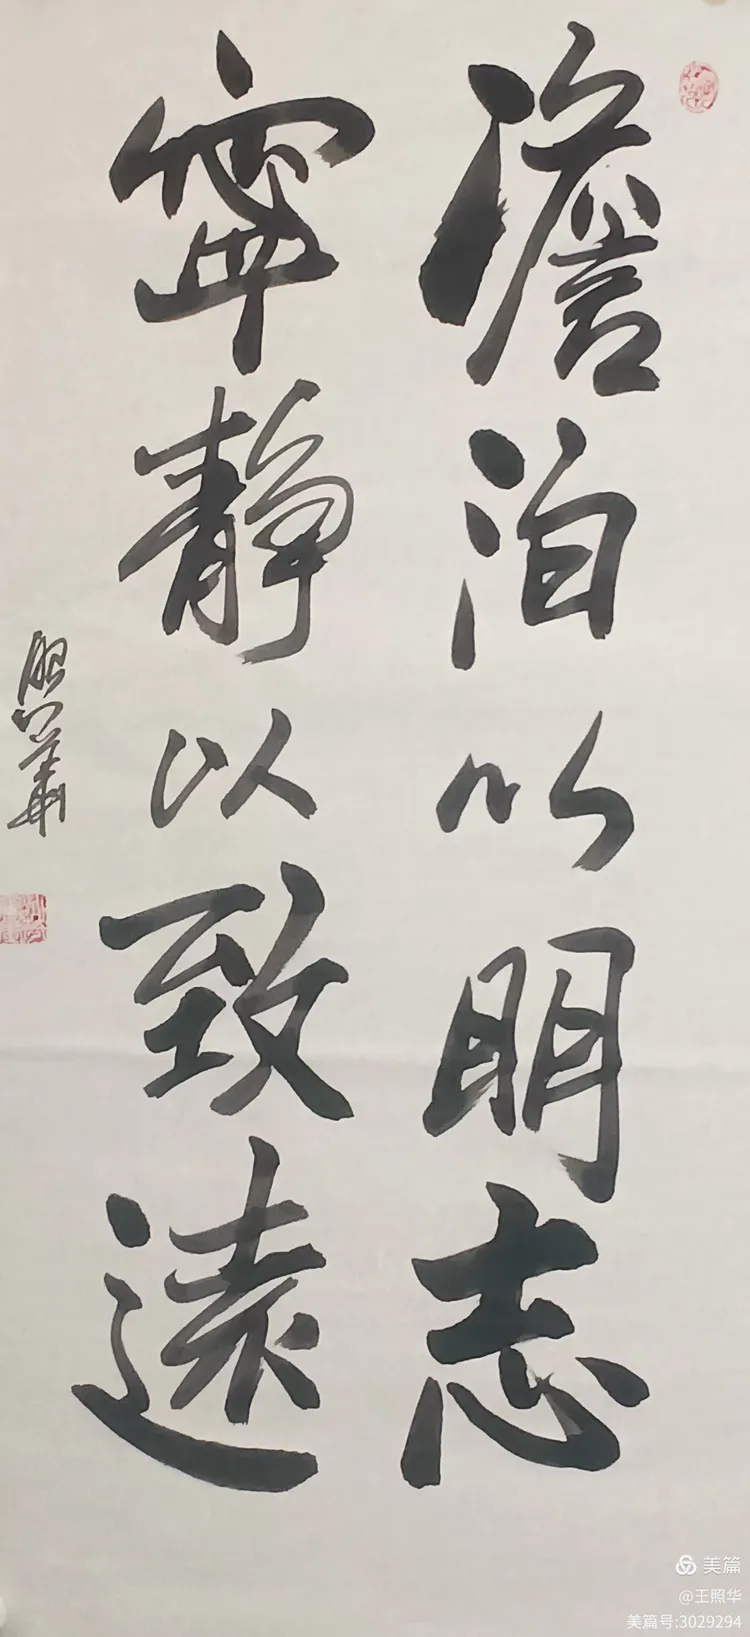 澹泊以明志
寧靜以致遠
照華
美篇
@王照华
美篇号:3029294